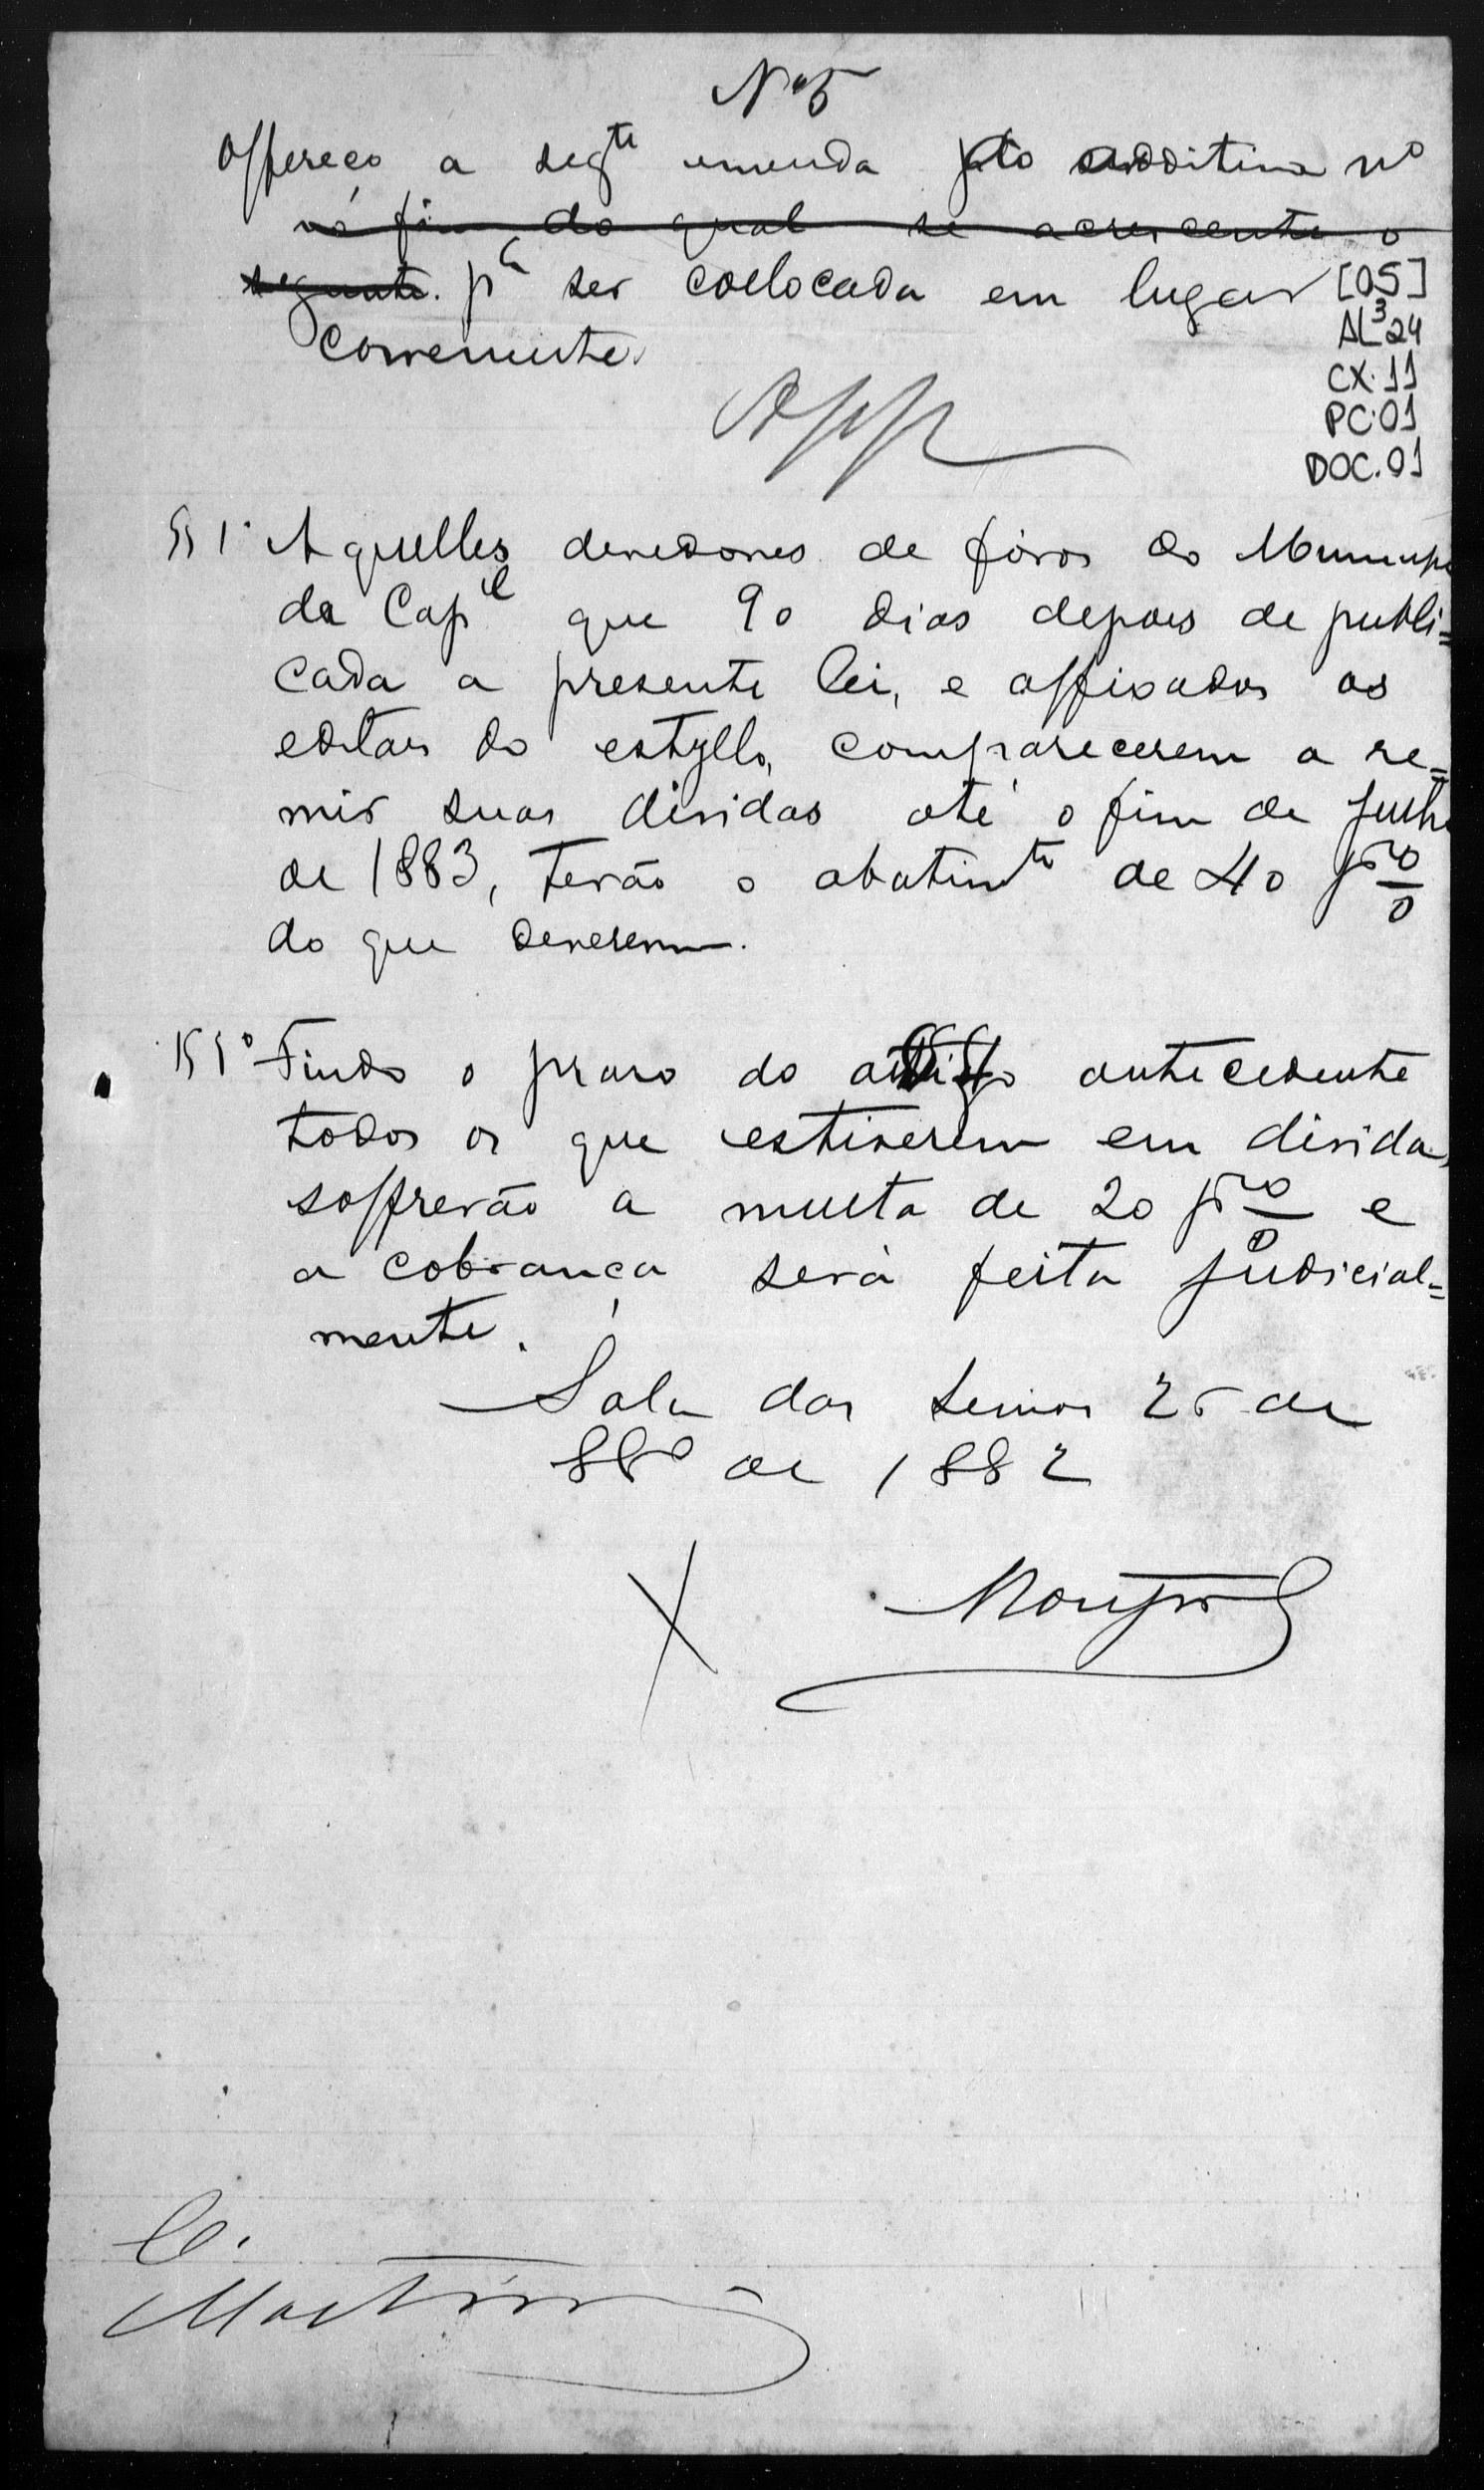 Nº 5
Offereço a segte emenda additiva nº
no fim do qual se acrescente o
seguinte. pª ser collocada em lugar
conveniente.
App
[05]
AL³24
CX.11
PC.01
DOC.01
§ 1º Aquelles devedores de fóros do Municipo
da Capel que 90 dias depois de publi=
cada a presente lei, e affixados os
editaes do estyllo, comparecerem a re=
mir suas dividas até o fim de Junho
de 1883, terão o abatimto de 40 p%
do que deverem.
§ Findo o praso do antecedente
todos os que estiverem em divida,
soffrerão a multa de 20 p% e
a cobrança será feita judicial=
mente.
Sala das 25 de
8bro de 1882
X
C.
Martins